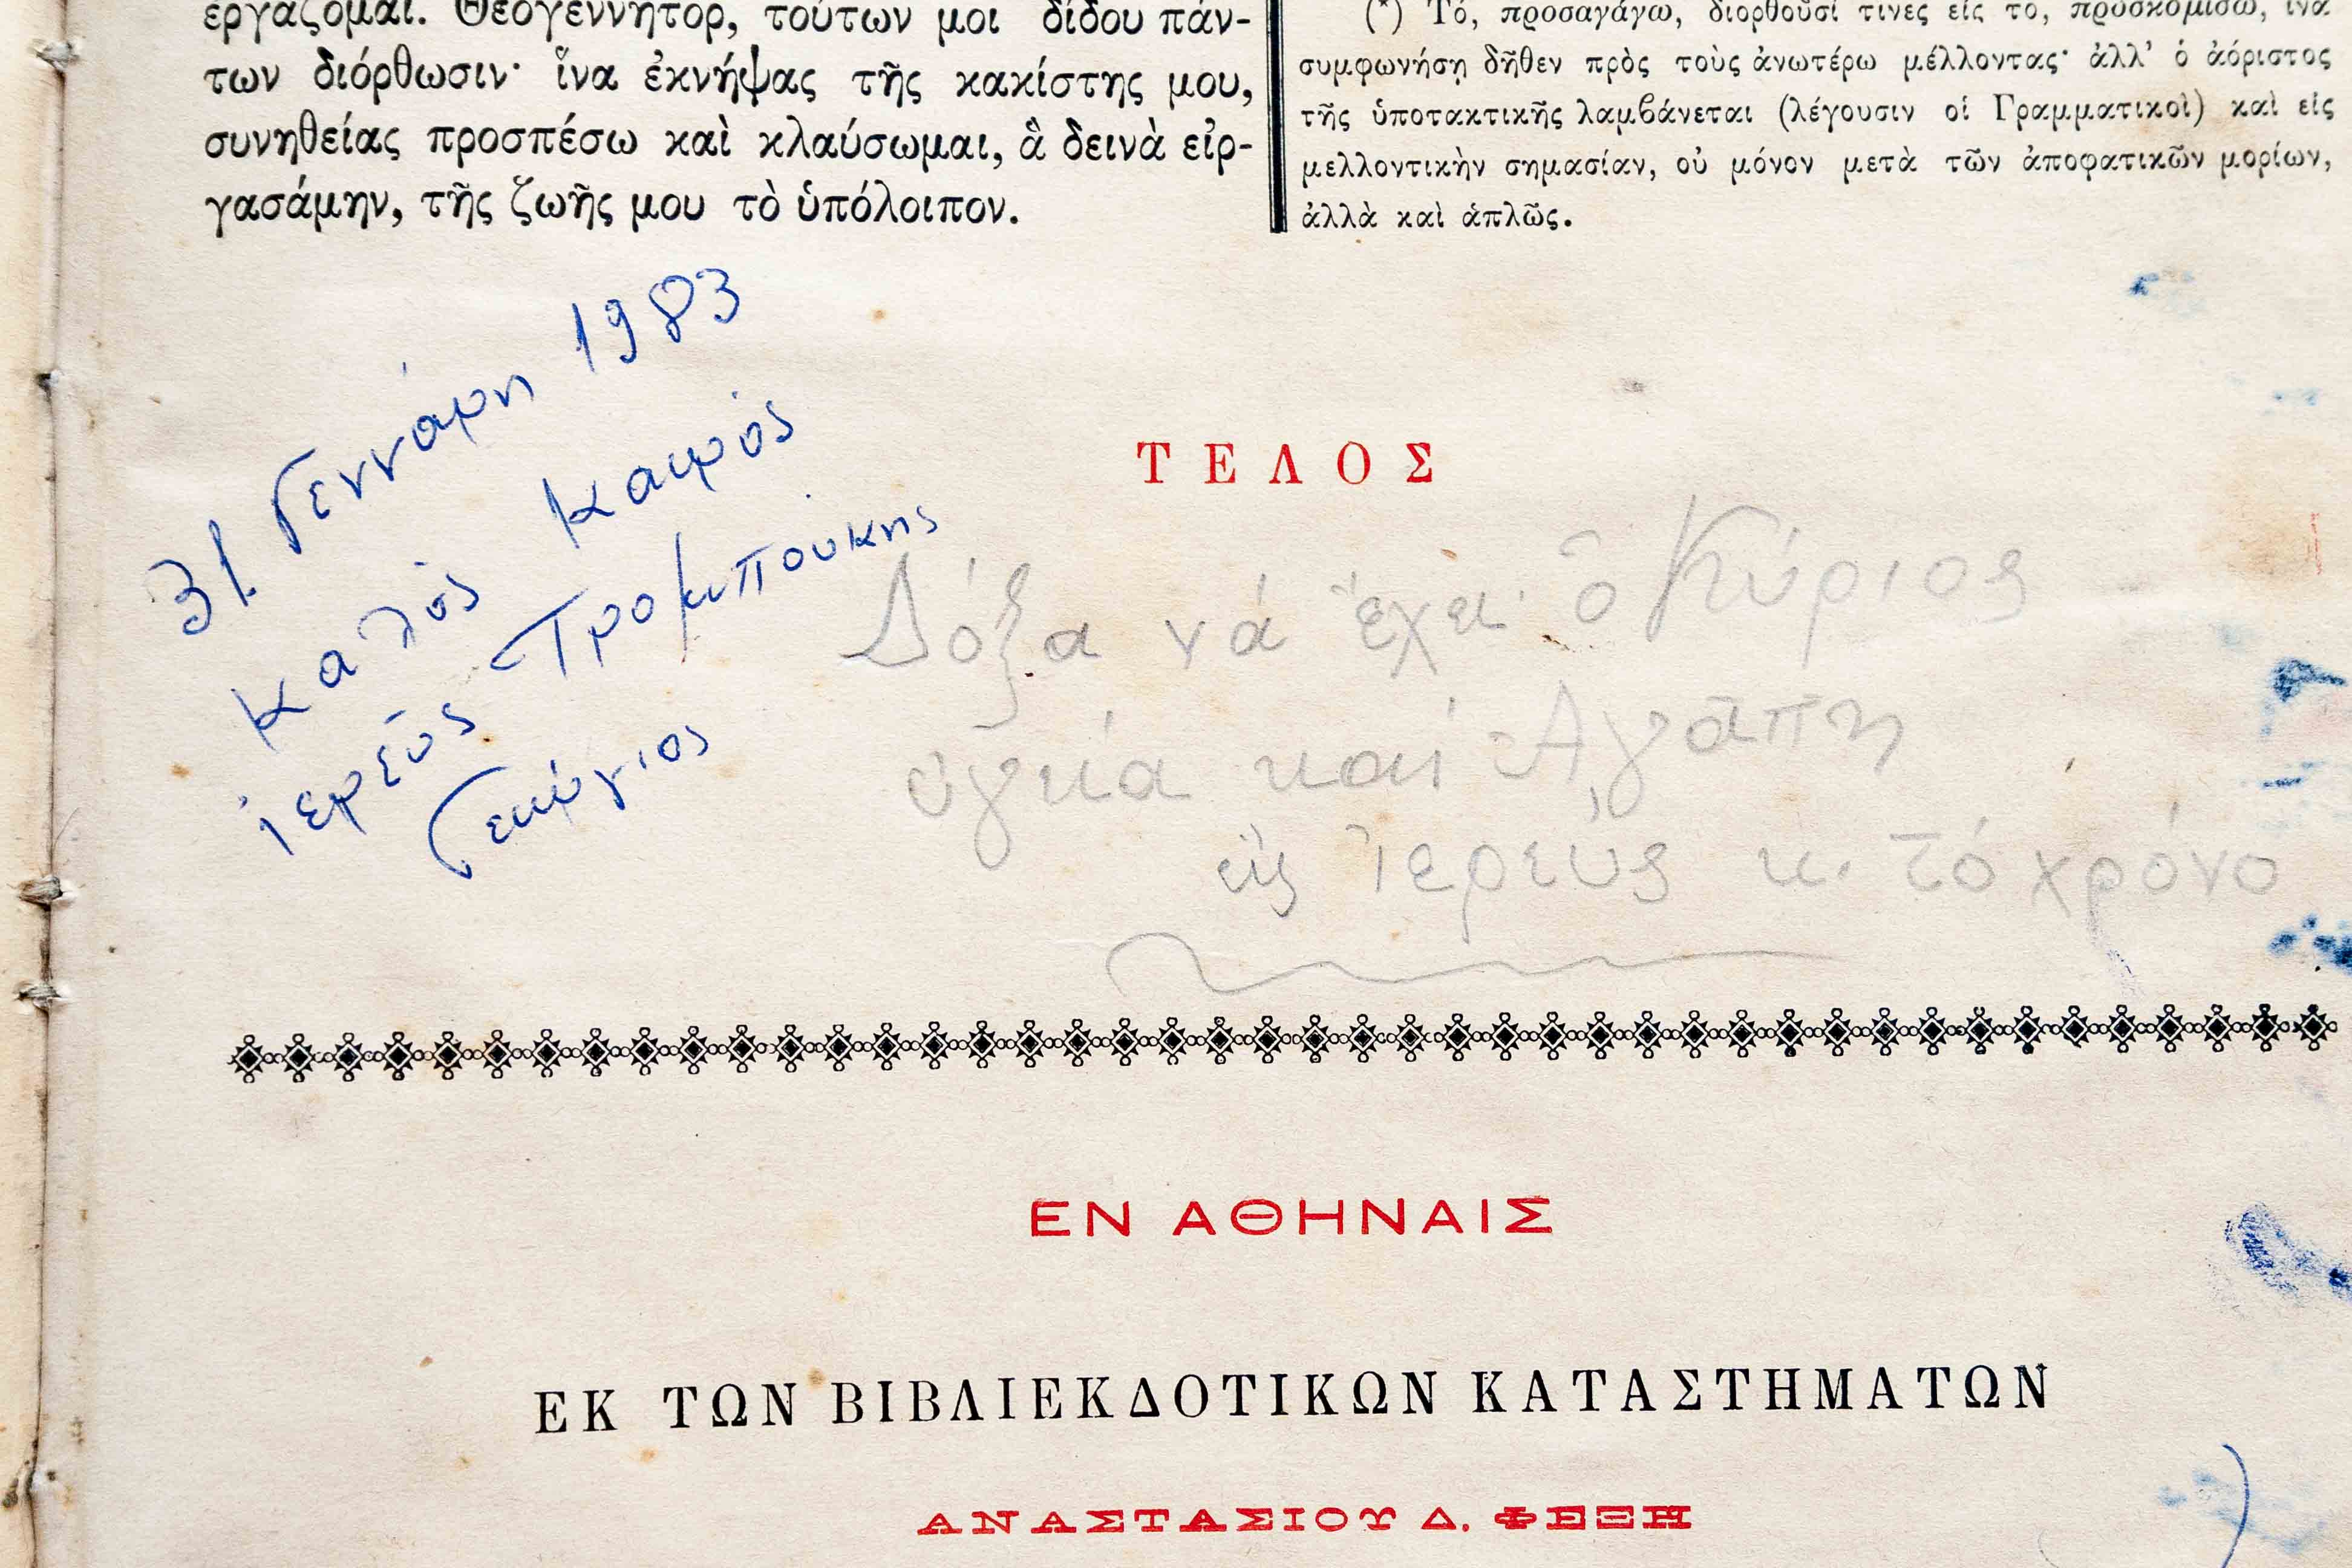 ἐργάζομαι. Θεογεννῆτορ, τούτων μοι δίδου πάν-
των διόρθωσιν· ἵνα ἐκνήψας τῆς κακίστης μου,
συνηθείας προσπέσω καὶ κλαύσωμαι, ἃ δεινὰ εἰρ-
γασάμην, τῆς ζωῆς μου τὸ ὑπόλοιπον.
(*) Τό, προσαγάγω, διορθοῦσί τινες εἰς το, προσκομίσω, ἵνα
συμφωνήσῃ δῆθεν πρὸς τοὺς ἀνωτέρω μέλλοντας· ἀλλ' ὁ ἀόριστος
τῆς ὑποτακτικῆς λαμβάνεται (λέγουσιν οἱ Γραμματικοὶ) καὶ εἰς
μελλοντικὴν σημασίαν, οὐ μόνον μετὰ τῶν ἀποφατικῶν μορίων,
ἀλλὰ καὶ ἁπλῶς.
31 Γεννάρη 1983
καλός καιρός
ἱερεύς Τρομπούκης
Γεώργιος
ΤΕΛΟΣ
Δόξα νά ἔχει ὁ Κύριος
ὑγεία καί Ἀγάπη
εἰς Ἱερεύς κ. τό χρόνο
ΕΝ ΑΘΗΝΑΙΣ
ΕΚ ΤΩΝ ΒΙΒΛΙΕΚΔΟΤΙΚΩΝ ΚΑΤΑΣΤΗΜΑΤΩΝ
ΑΝΑΣΤΑΣΙΟΥ Δ. ΦΕΞΗ